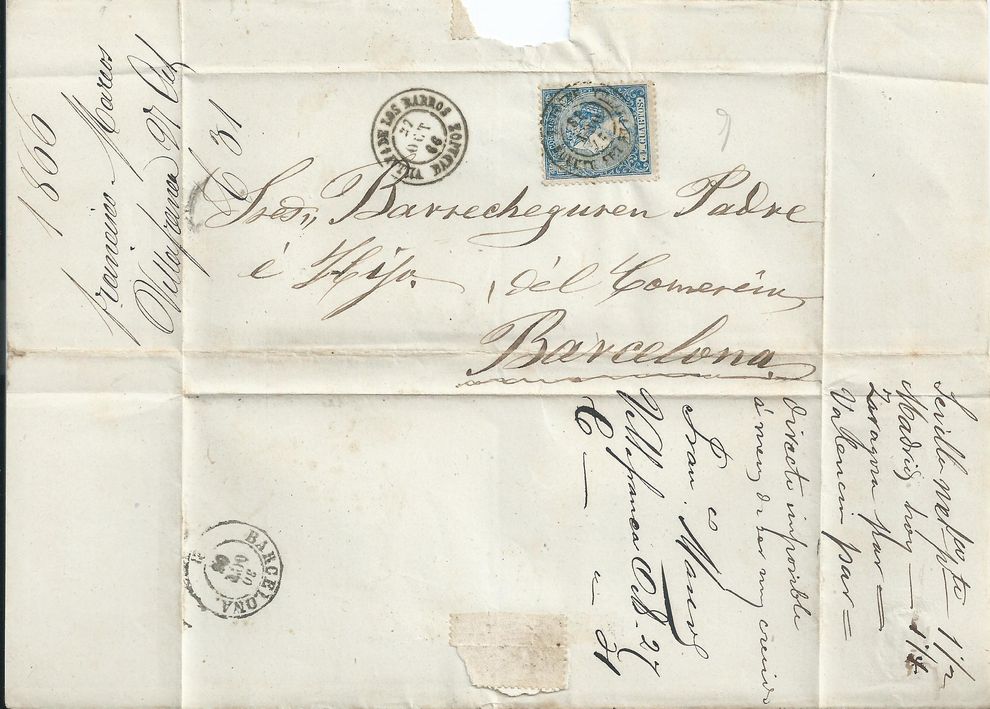 1866
Francisco Marcos
Villafranca 27 Oct
C 31
VILLA F. DE LOS BARROS BADAJOZ
27 OCT 66
Sres. Barrecheguren Padre
é Hijo. del Comercio
Barcelona
BARCELONA.
30 OCT 66
Sevilla 1/2
Madrid hoy — 1/4
Zaragoza par =
Valencia par =
directo imposible
á menos de ser muy crecido
Fran.co Marcos
Villafranca Oct. 27
C — " — 31